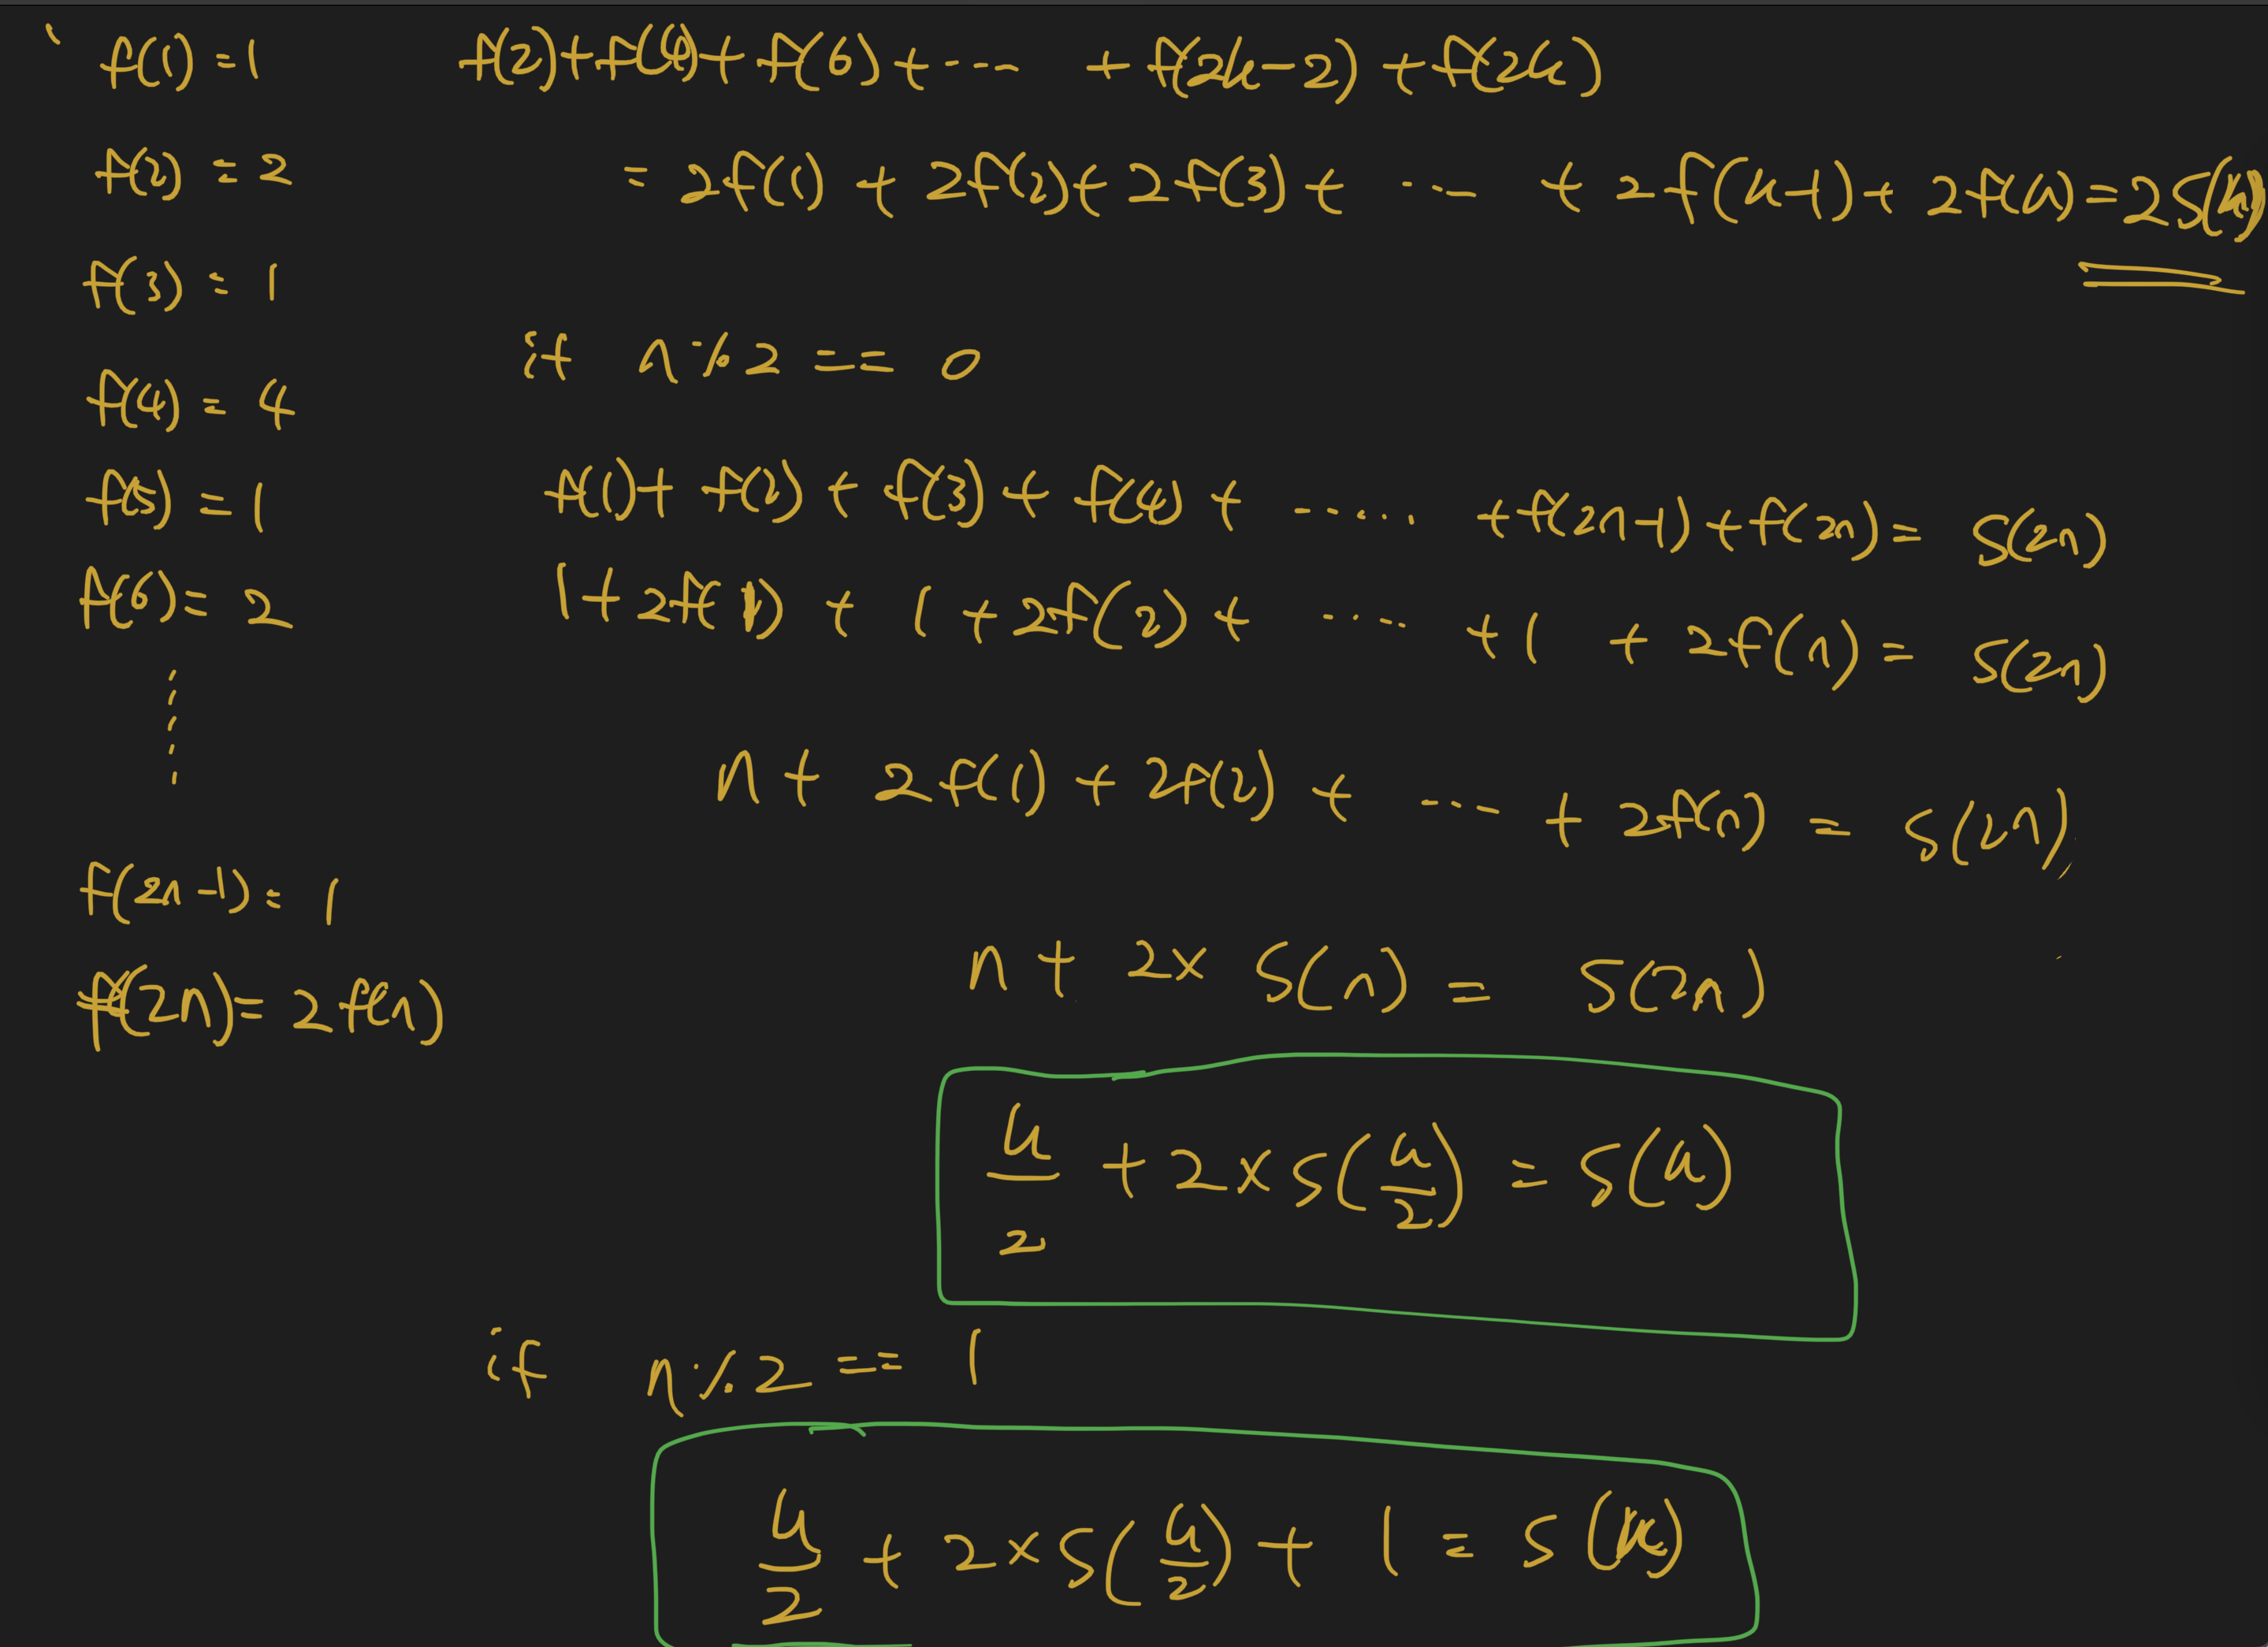 f(1) = 1
f(2) = 2
f(3) = 1
f(4) = 4
f(5) = 1
f(6) = 2
f(2n-1) = 1
f(2n) = 2f(n)
f(2) + f(4) + f(6) + --- + f(2k-2) + f(2k)
= 2f(1) + 2f(2) + 2f(3) + ---- + 2f(k-1) + 2f(k) = 2S(k)
if n%2 == 0
f(1) + f(2) + f(3) + f(4) + ..... + f(2n-1) + f(2n) = S(2n)
1 + 2f(1) + 1 + 2f(2) + ..... + 1 + 2f(n) = S(2n)
n + 2f(1) + 2f(2) + --- + 2f(n) = S(2n)
n + 2x S(n) = S(2n)
k/2 + 2 x S(k/2) = S(k)
if n%2 == 1
k/2 + 2 x S(k/2) + 1 = S(k)